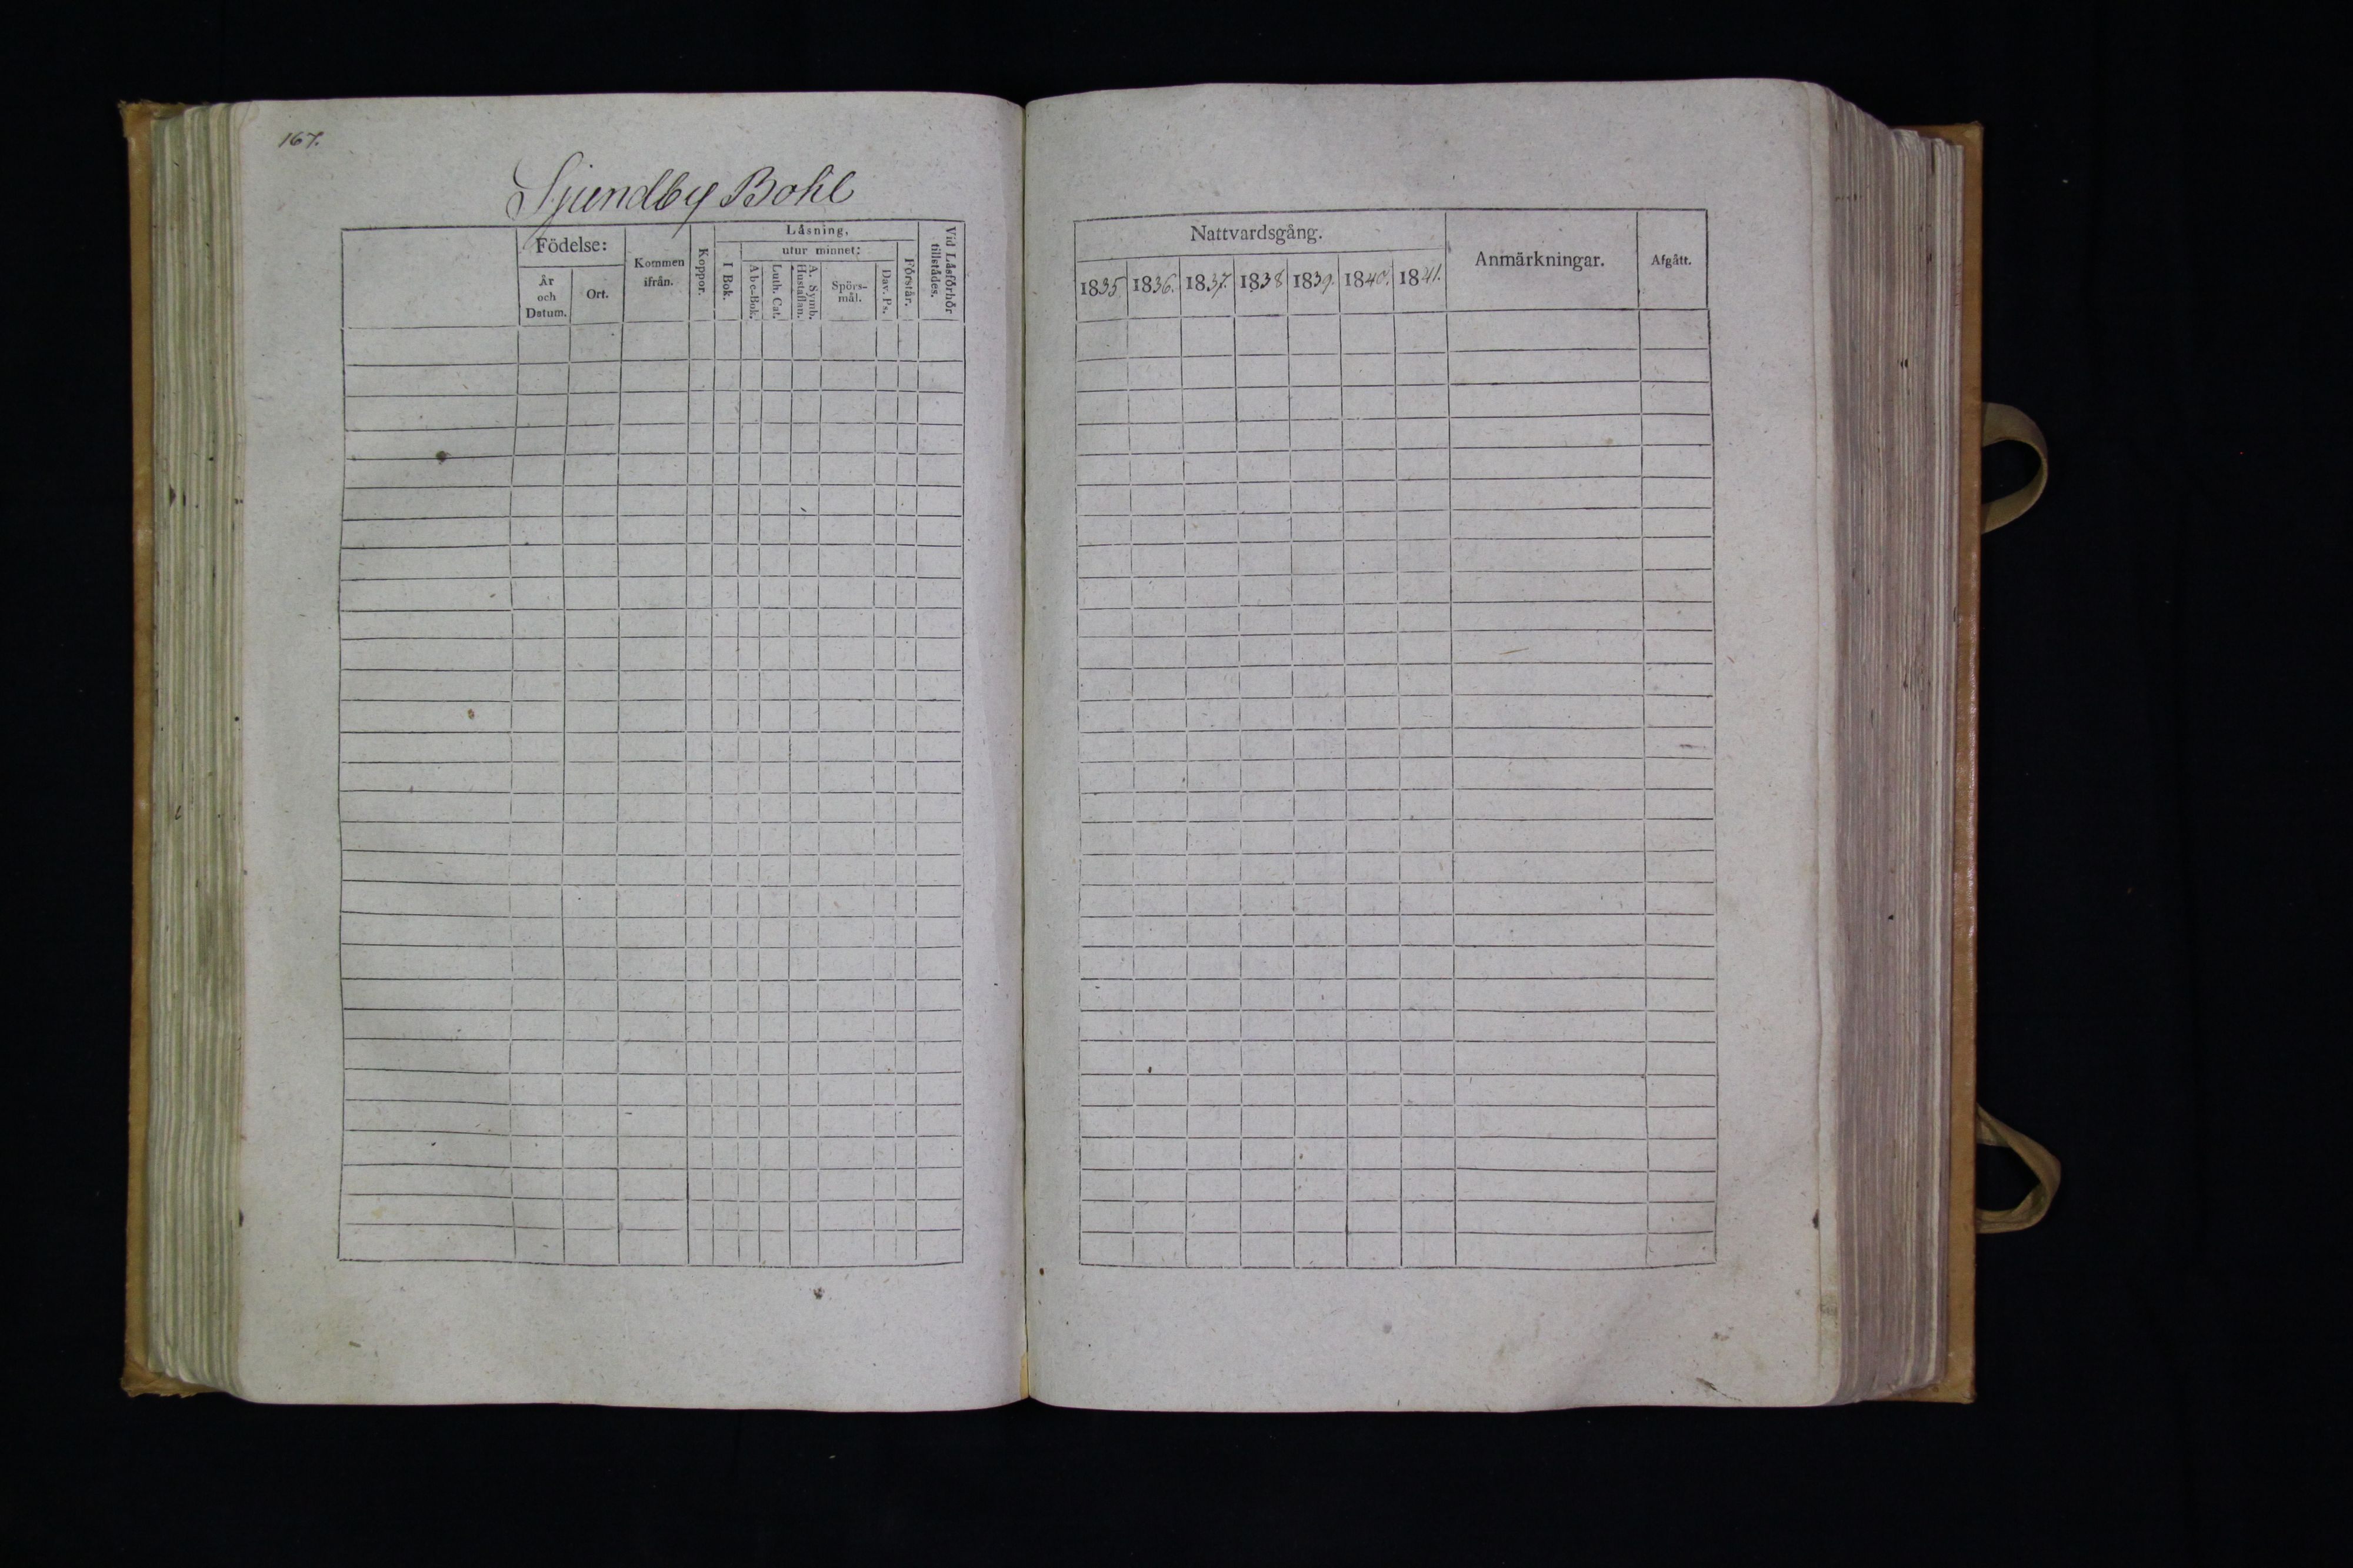 167.
Sjundby Bohl
Födelse:
År
och
Datum.
Ort.
Kommen
ifrån.
Koppor.
Låsning,
I Bok.
utur minnet:
Abc-Bok.
Luth. Cat.
A. Symb.
Hustaflan.
Spörs-
mål.
Dav. Ps.
Förstår.
Vid Låsförhör
tillstådes.
Nattvardsgång.
1835. 1836. 1837. 1838 1839. 1840. 1841.
Anmärkningar.
Afgått.